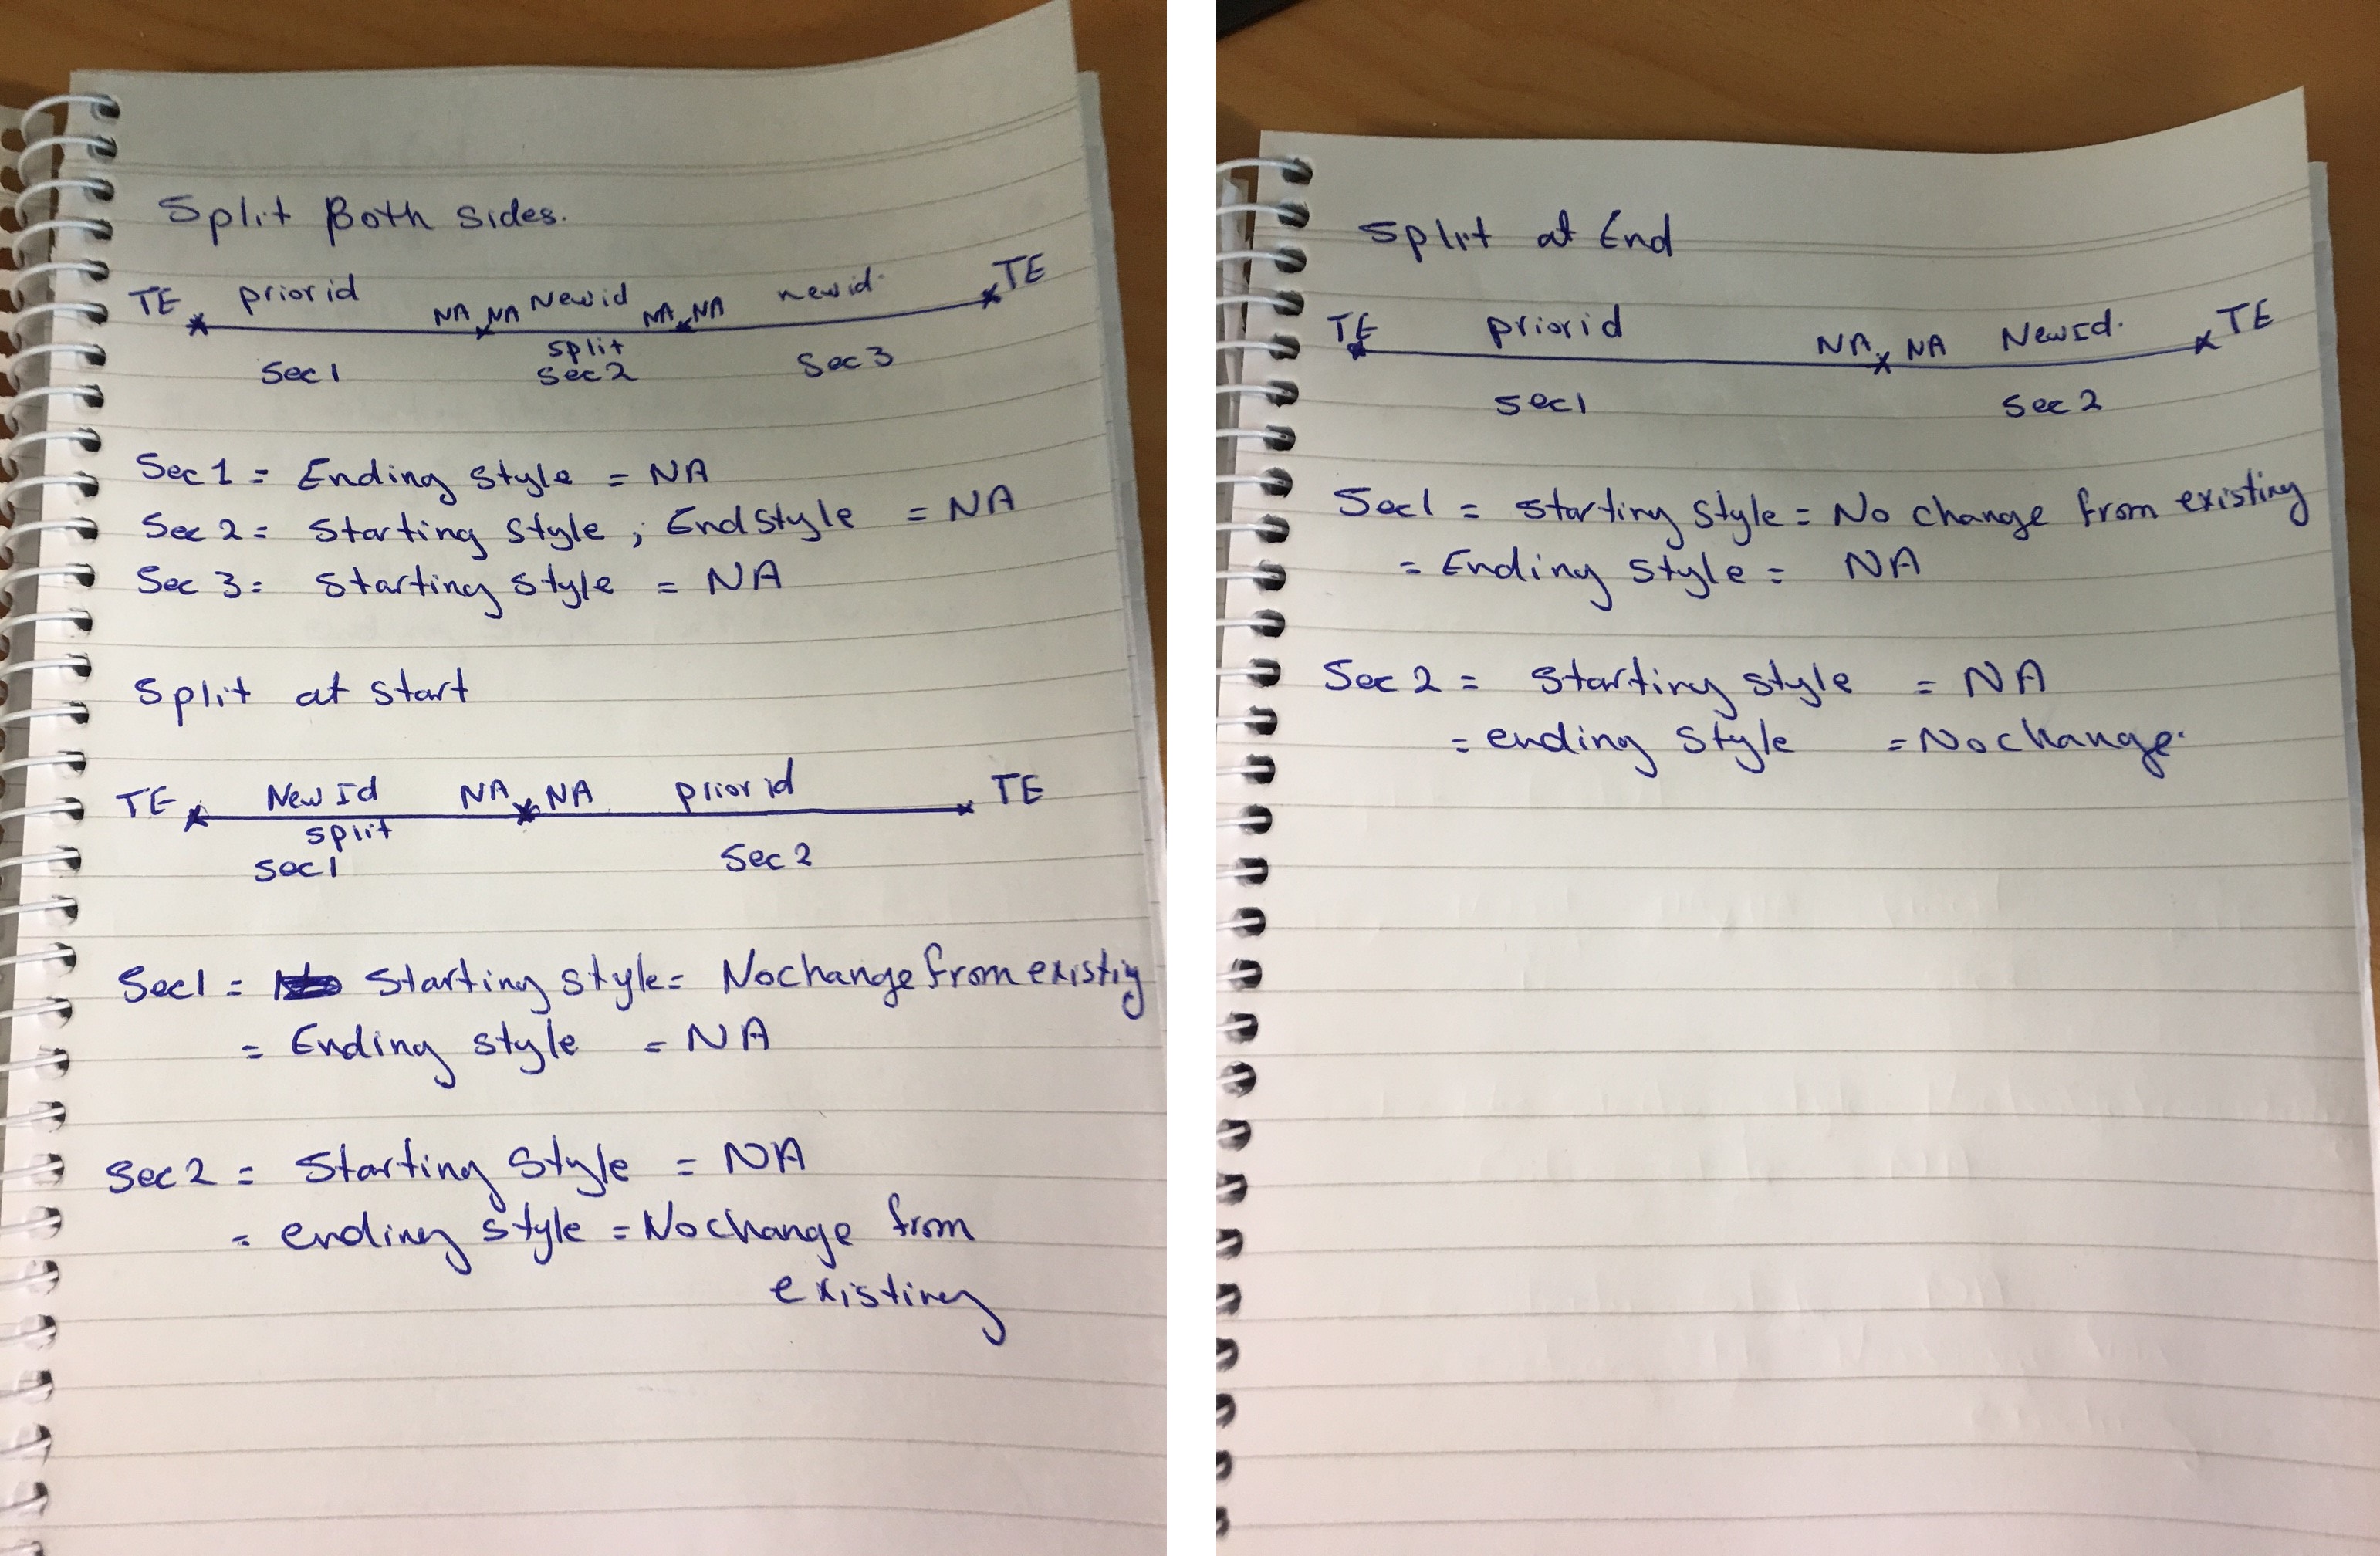 Split Both Sides.
TE prior id NA NA New id NA NA new id. TE
Sec 1 split Sec 2 Sec 3
Sec 1 = Ending Style = NA
Sec 2 = Starting Style ; End style = NA
Sec 3 = Starting Style = NA
Split at start
TE New Id NA NA prior id TE
split
Sec 1 Sec 2
Sec1 = Starting Style = No change from existing
= Ending Style = NA
Sec 2 = Starting Style = NA
= ending Style = No change from
existing
Split at End
TE prior id NA NA New Id. TE
Sec1 Sec 2
Sec1 = Starting Style = No change from existing
= Ending Style = NA
Sec 2 = Starting Style = NA
= ending Style = No change.